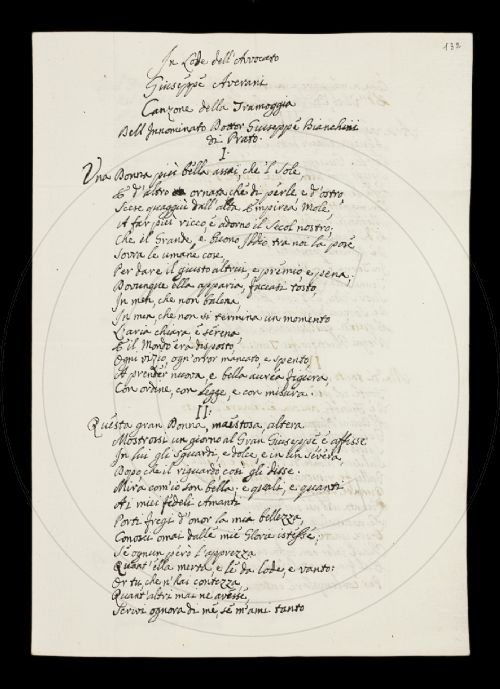 132
In Lode dell'Avvocato
Giuseppe Averani
Canzone della Tramoggia
Dell'Innominato Dottor Giuseppe Bianchini
di Prato.
I.
Una Donna più bella assai, che 'l Sole
E d'altro ornata, che di perle e d'ostro,
Scese quaggiù dall'alta Empirea Mole,
A far più ricco, e adorno il Secol nostro;
Che il Grande, e Buono Iddio tra noi la pose
Sovra le umane cose,
Per dare il giusto altrui, e premio, e pena;
Dovunque ella apparìa, faccasi tosto,
In men, che non balena,
In men, che non si termina un momento
L'aria chiara, e serena
E il Mondo era disposto,
Ogni vizio, ogn'error mancato, e spento,
A prender nuova, e bella aurea figura,
Con ordine, con legge, e con misura.
II.
Questa gran Donna, maestosa, altera
Mostrossi un giorno al Gran Giuseppe e affisse
In lui gli sguardi, e dolce, e in un severa,
Dopo che il riguardò così gli disse.
Mira com'io son bella. e quali, e quanti
Ai miei fedeli Amanti
Porti fregi d'onor la mia bellezza,
Conosci omai dalle mie Glorie istesse;
Se ognun però l'apprezza
Quant'ella merta, e le dà lode, e vanto:
Or tu, che n'hai contezza,
Quant'altri mai ne avesse,
Scrivi ognora di me, se m'ami tanto